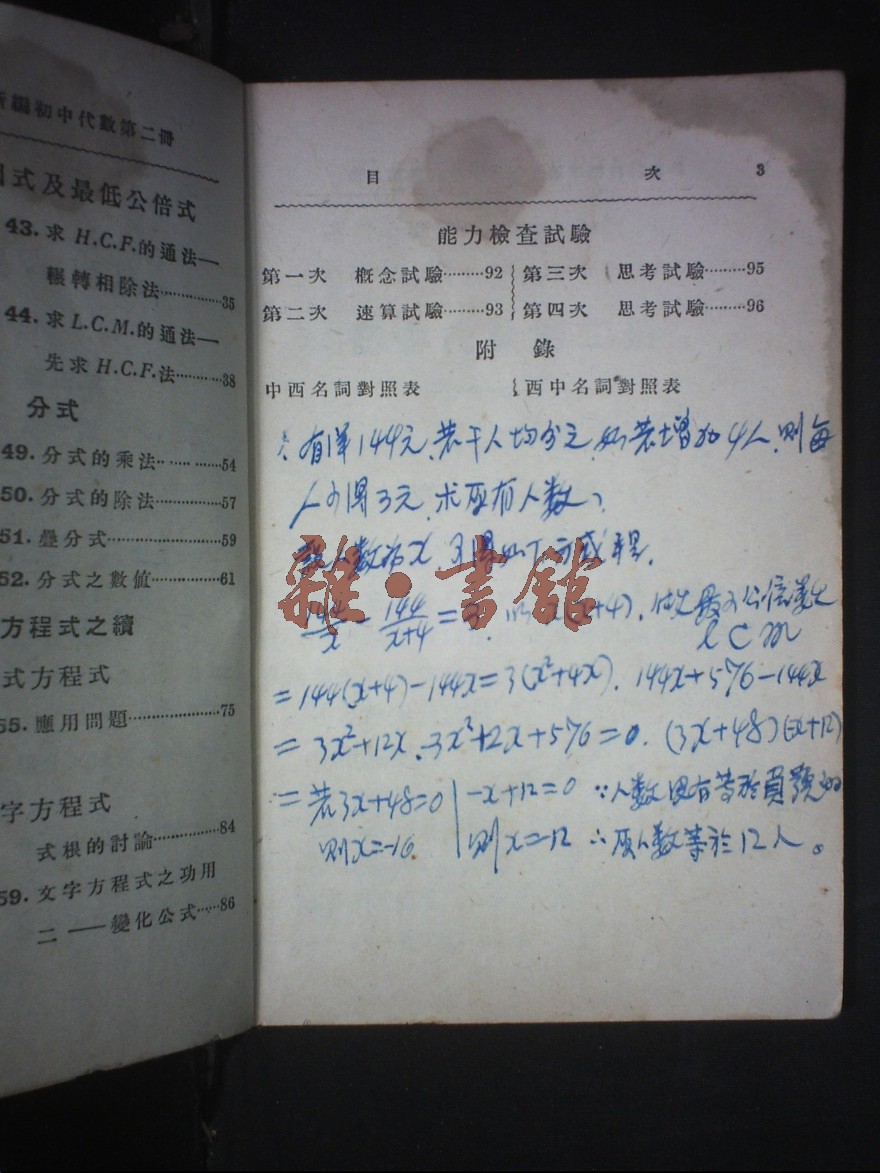 新編初中代數第二冊
因式及最低公倍式
43.求 H.C.F.的通法—
輾轉相除法……………35
44.求 L.C.M.的通法—
先求 H.C.F.法…………38
分式
49.分式的乘法…………54
50.分式的除法…………57
51.疊分式………………59
52.分式之數値…………61
方程式之續
式方程式
55.應用問題……………75
字方程式
式根的討論……………84
59.文字方程式之功用
二 ——變化公式……86
目 次 3
能力檢查試驗
第一次 概念試驗………92 第三次 思考試驗………95
第二次 速算試驗………93 第四次 思考試驗………96
附 錄
中西名詞對照表 西中名詞對照表
有洋144元,若干人均分之,如若增加4人,則每
人少得3元,求原有人数
設人数為x,得如下方程
144/x - 144/x+4 = 3. (x+4), 最小公倍
L C M
=144(x+4)-144x=3(x²+4x). 144x+576-144x
=3x²+12x. 3x²+12x+576=0. (3x+48)(-x+12)
=若3x+48=0 | -x+12=0 ∵人数 有等於負號
則x=-16 | 則x=12 ∴原人數等於12人。
雜·書館